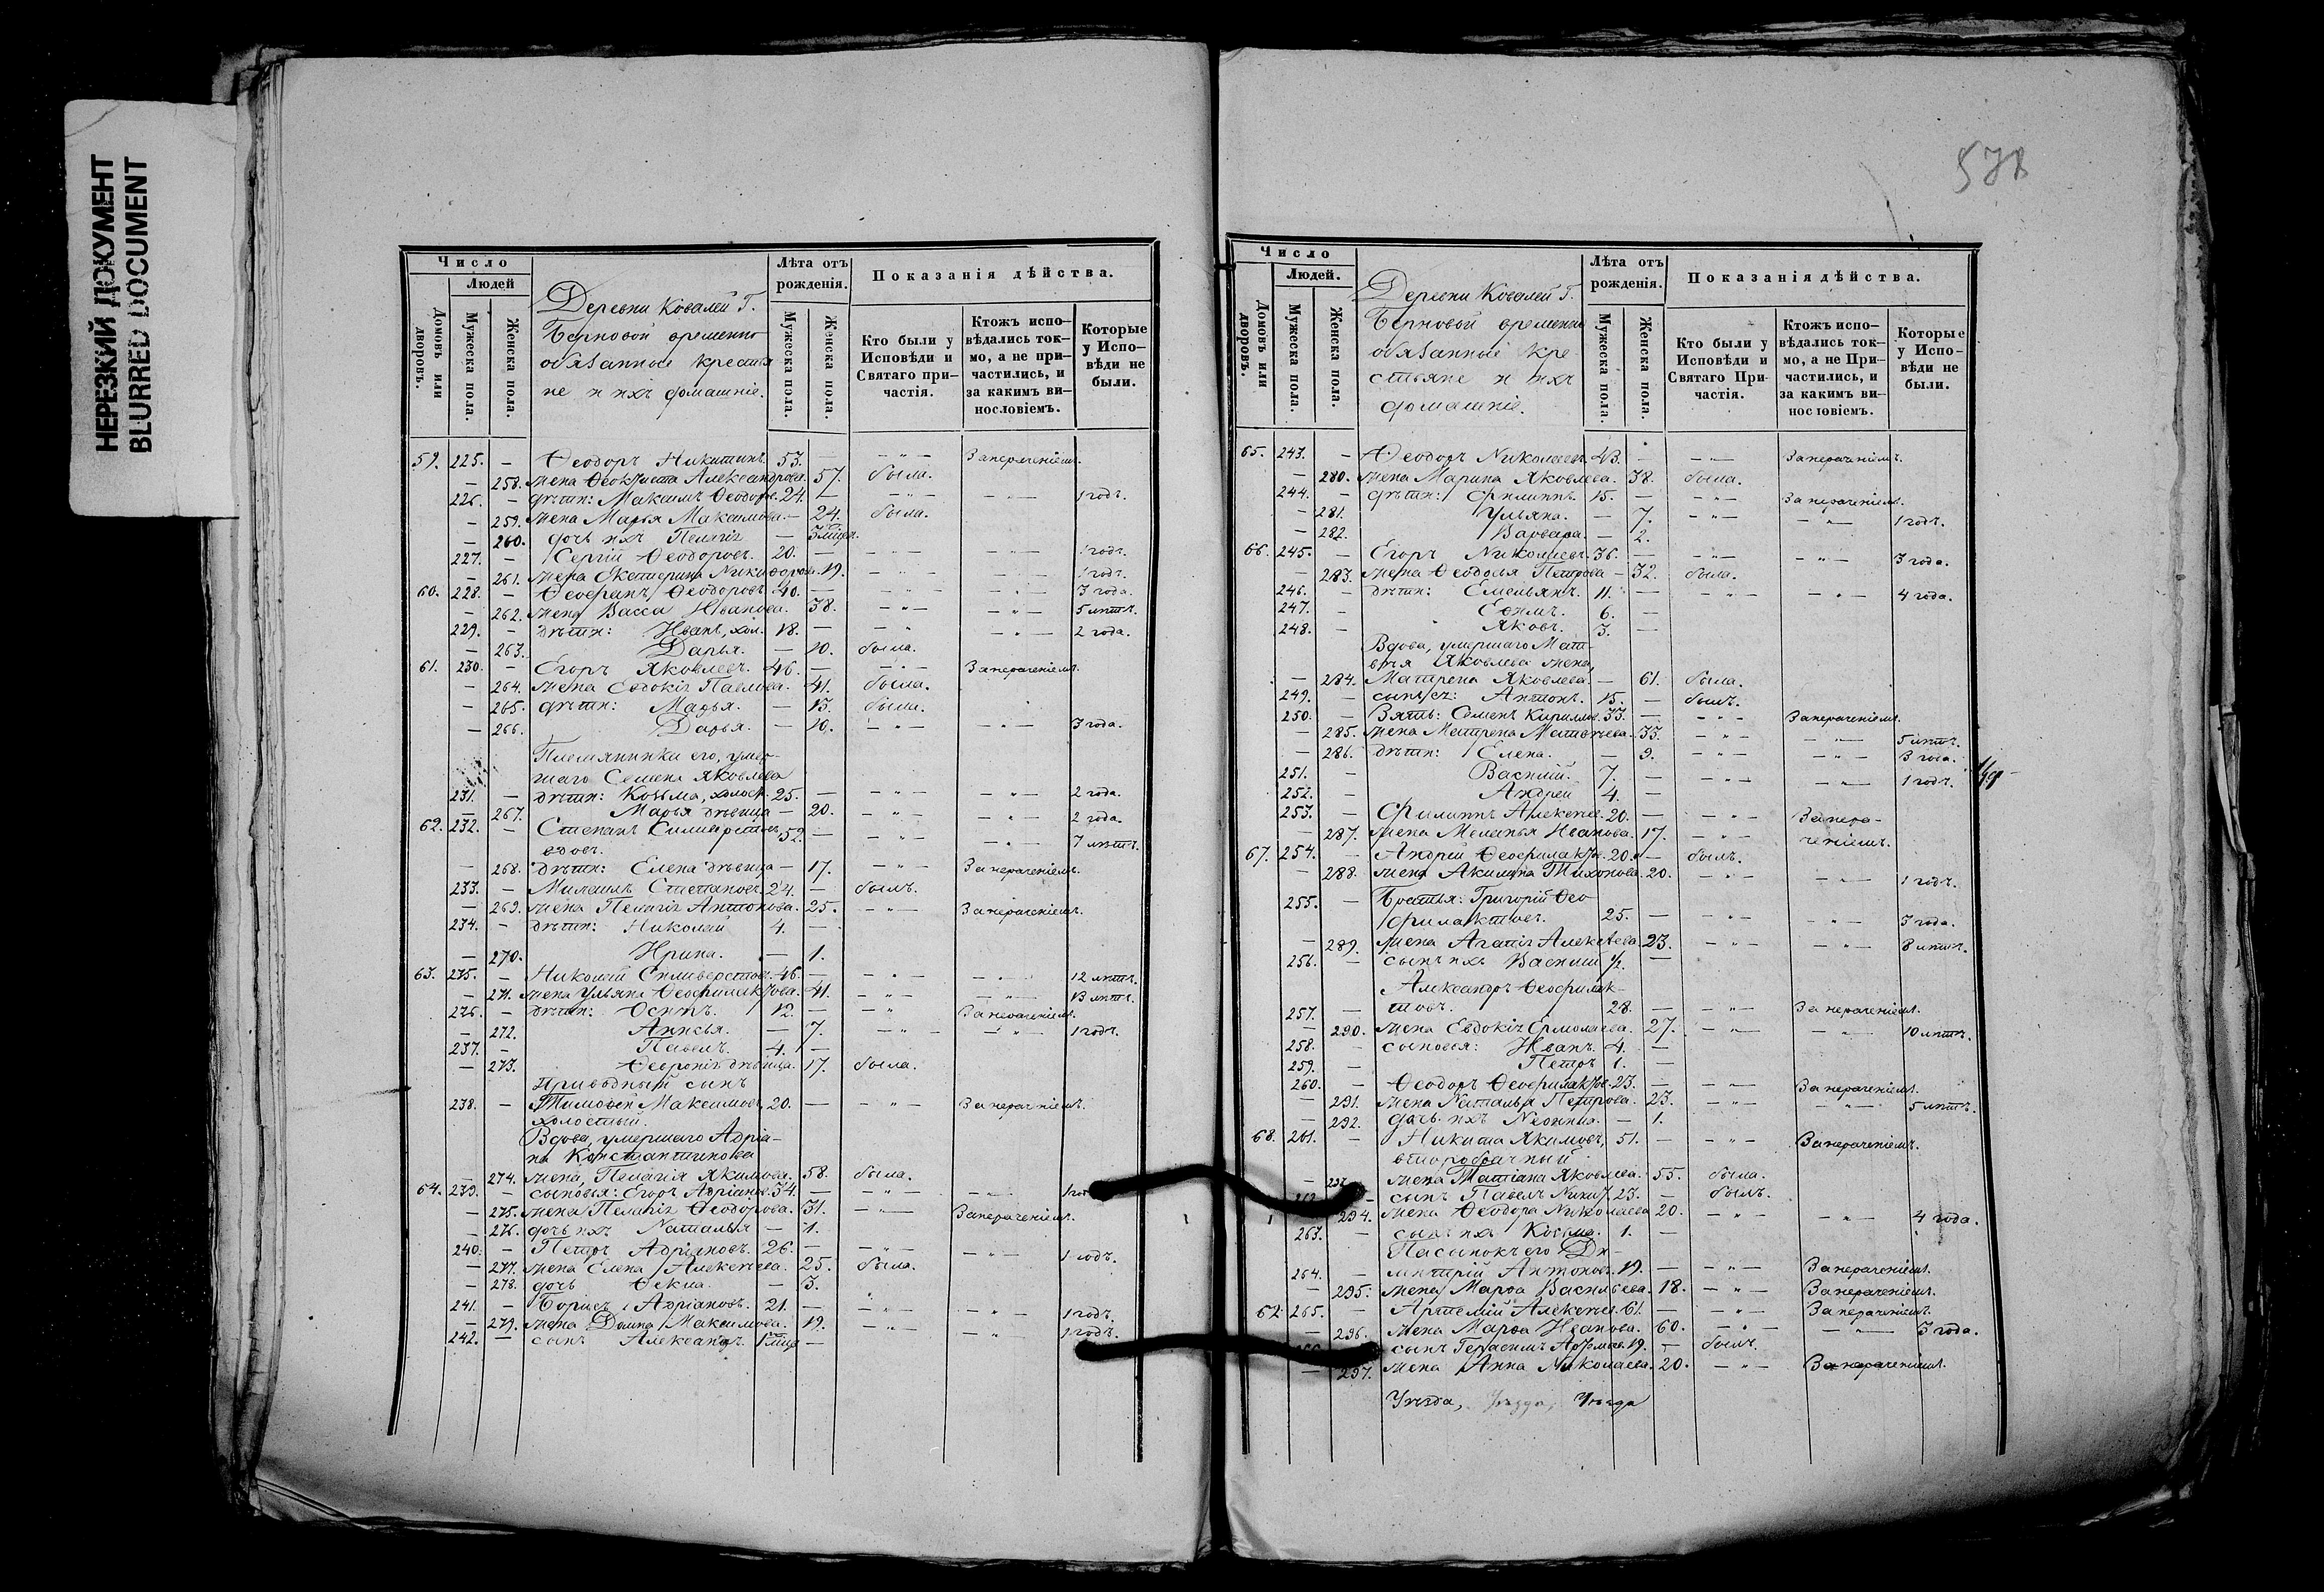 НЕРЕЗКИЙ ДОКУМЕНТ
BLURRED DOCUMENT
Число
Людей
Домовъ или дворовъ.
Мужеска пола.
Женска пола.
Деревни Ковалей Г.
Берновой временно
обязанные крестья
не и ихъ домашніе.
Лѣта отъ рожденія.
Мужеска пола.
Женска пола.
Показанія дѣйства.
Кто были у Исповѣди и Святаго причастія.
Ктожъ исповѣдались токмо, а не причастились, и за какимъ винословіемъ.
Которые у Исповѣди не были.
59. 225. — Ѳеодоръ Никитинъ. 53. — — „ — За нераченіемъ.
— 258. жена Ѳеоктиста Александрова. 57. была.
226. — дѣти: Максимъ Ѳеодоров. 24. — — „ — — „ — 1 годъ.
— 259. жена Марья Максимова. — 24. была.
— 260. дочь ихъ Пелагія —
227. — Сергій Ѳеодоровъ. 20. — — „ — — „ — 1 годъ.
— 261. жена Екатерина Никифорова. 19. — „ — — „ — 1 годъ.
60. 228. — Ѳеофанъ Ѳеодоровъ. 40. — — „ — — „ — 3 года.
— 262. жена Васса Иванова. 38. — „ — — „ — 5 лѣтъ.
229. — дѣти: Иванъ, хол. 18. — — „ — „ — 2 года.
— 263. Дарья. — 10. была.
61. 230. — Егоръ Яковлевъ. 46. — — „ — За нераченіемъ.
— 264. жена Евдокія Павлова. 41. была.
— 265. дѣти: Марья. — 15. была.
— 266. Дарья. — 10. — „ — — „ — 3 года.
Племянники его, умер-
шаго Семена Яковлева
231. — дѣти: Козьма, холост. 25. — — „ — — „ — 2 года.
— 267. Марья дѣвица — 20. — „ — — „ — 2 года.
62. 232. — Степанъ Силиверстовъ, 52. — — „ — — „ — 7 лѣтъ.
вдовъ.
— 268. дѣти: Елена дѣвица — 17. — „ — За нераченіемъ.
233. — Михаилъ Степановъ. 24. — былъ.
— 269. жена Пелагія Антонова. 25. — „ — За нераченіемъ.
234. — дѣти: Николай 4. —
— 270. Ирина. — 1.
63. 235. — Николай Силиверстов. 46. — — „ — — „ — 12 лѣтъ.
— 271. жена Ульяна Ѳеофилактова. 41. — „ — — „ — 13 лѣтъ.
236. — дѣти: Осипъ. 12. — — „ За нераченіемъ.
— 272. Анисья. — 7. — „ — — „ — 1 годъ.
237. — Павелъ. 4. —
— 273. Ѳевронія дѣвица. 17. была.
Приводный сынъ
238. — Тимофей Максимовъ, 20. — — „ — За нераченіемъ.
холостый.
Вдова, умершаго Адріа-
на Константинова
— 274. жена, Пелагія Якимова. 58. была.
64. 239. — сыновья: Егоръ Адріанов. 34. — — „ — — „ —
— 275. жена Пелагія Ѳеодорова. 31. — „ — За нераченіемъ.
— 276. дочь ихъ Наталья — 1.
240. — Петръ Адріановъ. 26. — — „ — — „ — 1 годъ.
— 277. жена Елена Алексѣева. 25. была.
— 278. дочь Ѳекла. — 3.
241. — Борисъ Адріановъ. 21. — — „ — — „ — 1 годъ.
— 279. жена Домна Максимова. 19. — „ — — „ 1 годъ.
242. — сынъ Александръ. —
578
Число
Людей.
Домовъ или дворовъ.
Мужеска пола.
Женска пола.
Деревни Ковалей Г.
Берновой временно
обязанные кре-
стьяне и ихъ
домашніе.
Лѣта отъ рожденія.
Мужеска пола
Женска пола.
Показанія дѣйства.
Кто были у Исповѣди и Святаго Причастія.
Ктожъ исповѣдались токмо, а не Причастились, и за какимъ винословіемъ.
Которые у Исповѣди не были.
65. 243. — Ѳеодоръ Николаевъ. 43. — — „ — За нераченіемъ.
— 280. жена Марина Яковлева. 38. была.
244. — дѣти: Филиппъ. 15. — — „ — За нераченіемъ.
— 281. Ульяна. — 7. — „ — — „ — 1 годъ.
— 282. Варвара. — 2.
66. 245. — Егоръ Николаевъ. 36. — — „ — — „ — 3 года.
— 283. жена Ѳеодосья Петрова — 32. была.
246. — дѣти: Емельянъ. 11. — — „ — — „ — 4 года.
247. — Ефимъ. 6. —
248. — Яковъ. 3. —
Вдова, умершаго Мат-
вѣя Яковлева жена,
— 284. Матрена Яковлева. — 61. была.
249. — сынъ ея: Антонъ. 15. — былъ.
250. — Зять: Семенъ Кирилов. 33. — — „ — За нераченіемъ.
— 285. жена Матрена Матвѣева. 33. — „ — — „ — 5 лѣтъ.
— 286. дѣти: Елена. — 9. — „ — — „ — 3 года.
251. — Василій. 7. — — „ — — „ — 1 годъ.
252. — Андрей 4. —
253. — Филиппъ Алексѣев. 20. — — „ — За нера-
— 287. жена Меланья Иванова. 17. — „ — ченіемъ.
67. 254. — Андрей Ѳеофилактов. 20. — былъ.
— 288. жена Акилина Тихонова. 20. — „ — — „ — 1 годъ.
255. — Братья: Григорій Ѳео
филактовъ. 25. — — „ — — „ — 3 года.
— 289. жена Агапія Алексѣева. 23. — „ — — „ — 8 лѣтъ.
256. — сынъ ихъ Василій ½. —
Александръ Ѳеофилак-
257. — товъ. 28. — — „ — За нераченіемъ.
— 290. жена Евдокія Ермолаева. 27. — „ — — „ — 10 лѣтъ.
258. — сыновья: Иванъ. 4. —
259. — Петръ 1. —
260. — Ѳеодоръ Ѳеофилактов. 23. — — „ — За нераченіемъ.
— 291. жена Наталья Петрова. 23. — „ — — „ — 5 лѣтъ.
— 292. дочь ихъ — 1.
68. 261. — Никита Якимовъ, 51. — — „ — За нераченіемъ.
второбрачный
— жена Татіана Яковлева. 55. была.
— сынъ Павелъ Никит. 23. — былъ.
294. жена Ѳеодора Николаева 20. — „ — — „ — 4 года.
263. — сынъ ихъ Косьма. 1. —
Пасынокъ его Ди-
264. — митрій Антоновъ. 19. — — „ — За нераченіемъ.
— 295. жена Марфа Васильева. 18. — „ — За нераченіемъ.
265. — Артемій Алексѣев. 61. — — „ — За нераченіемъ.
— 296. жена Марфа Иванова. 60. — „ — — „ — 3 года.
сынъ Герасимъ Артемов. 19. — былъ.
— 297. жена Анна Николаева. 20. — „ — За нераченіемъ.
Уѣзда, Уѣзда, Уѣзда